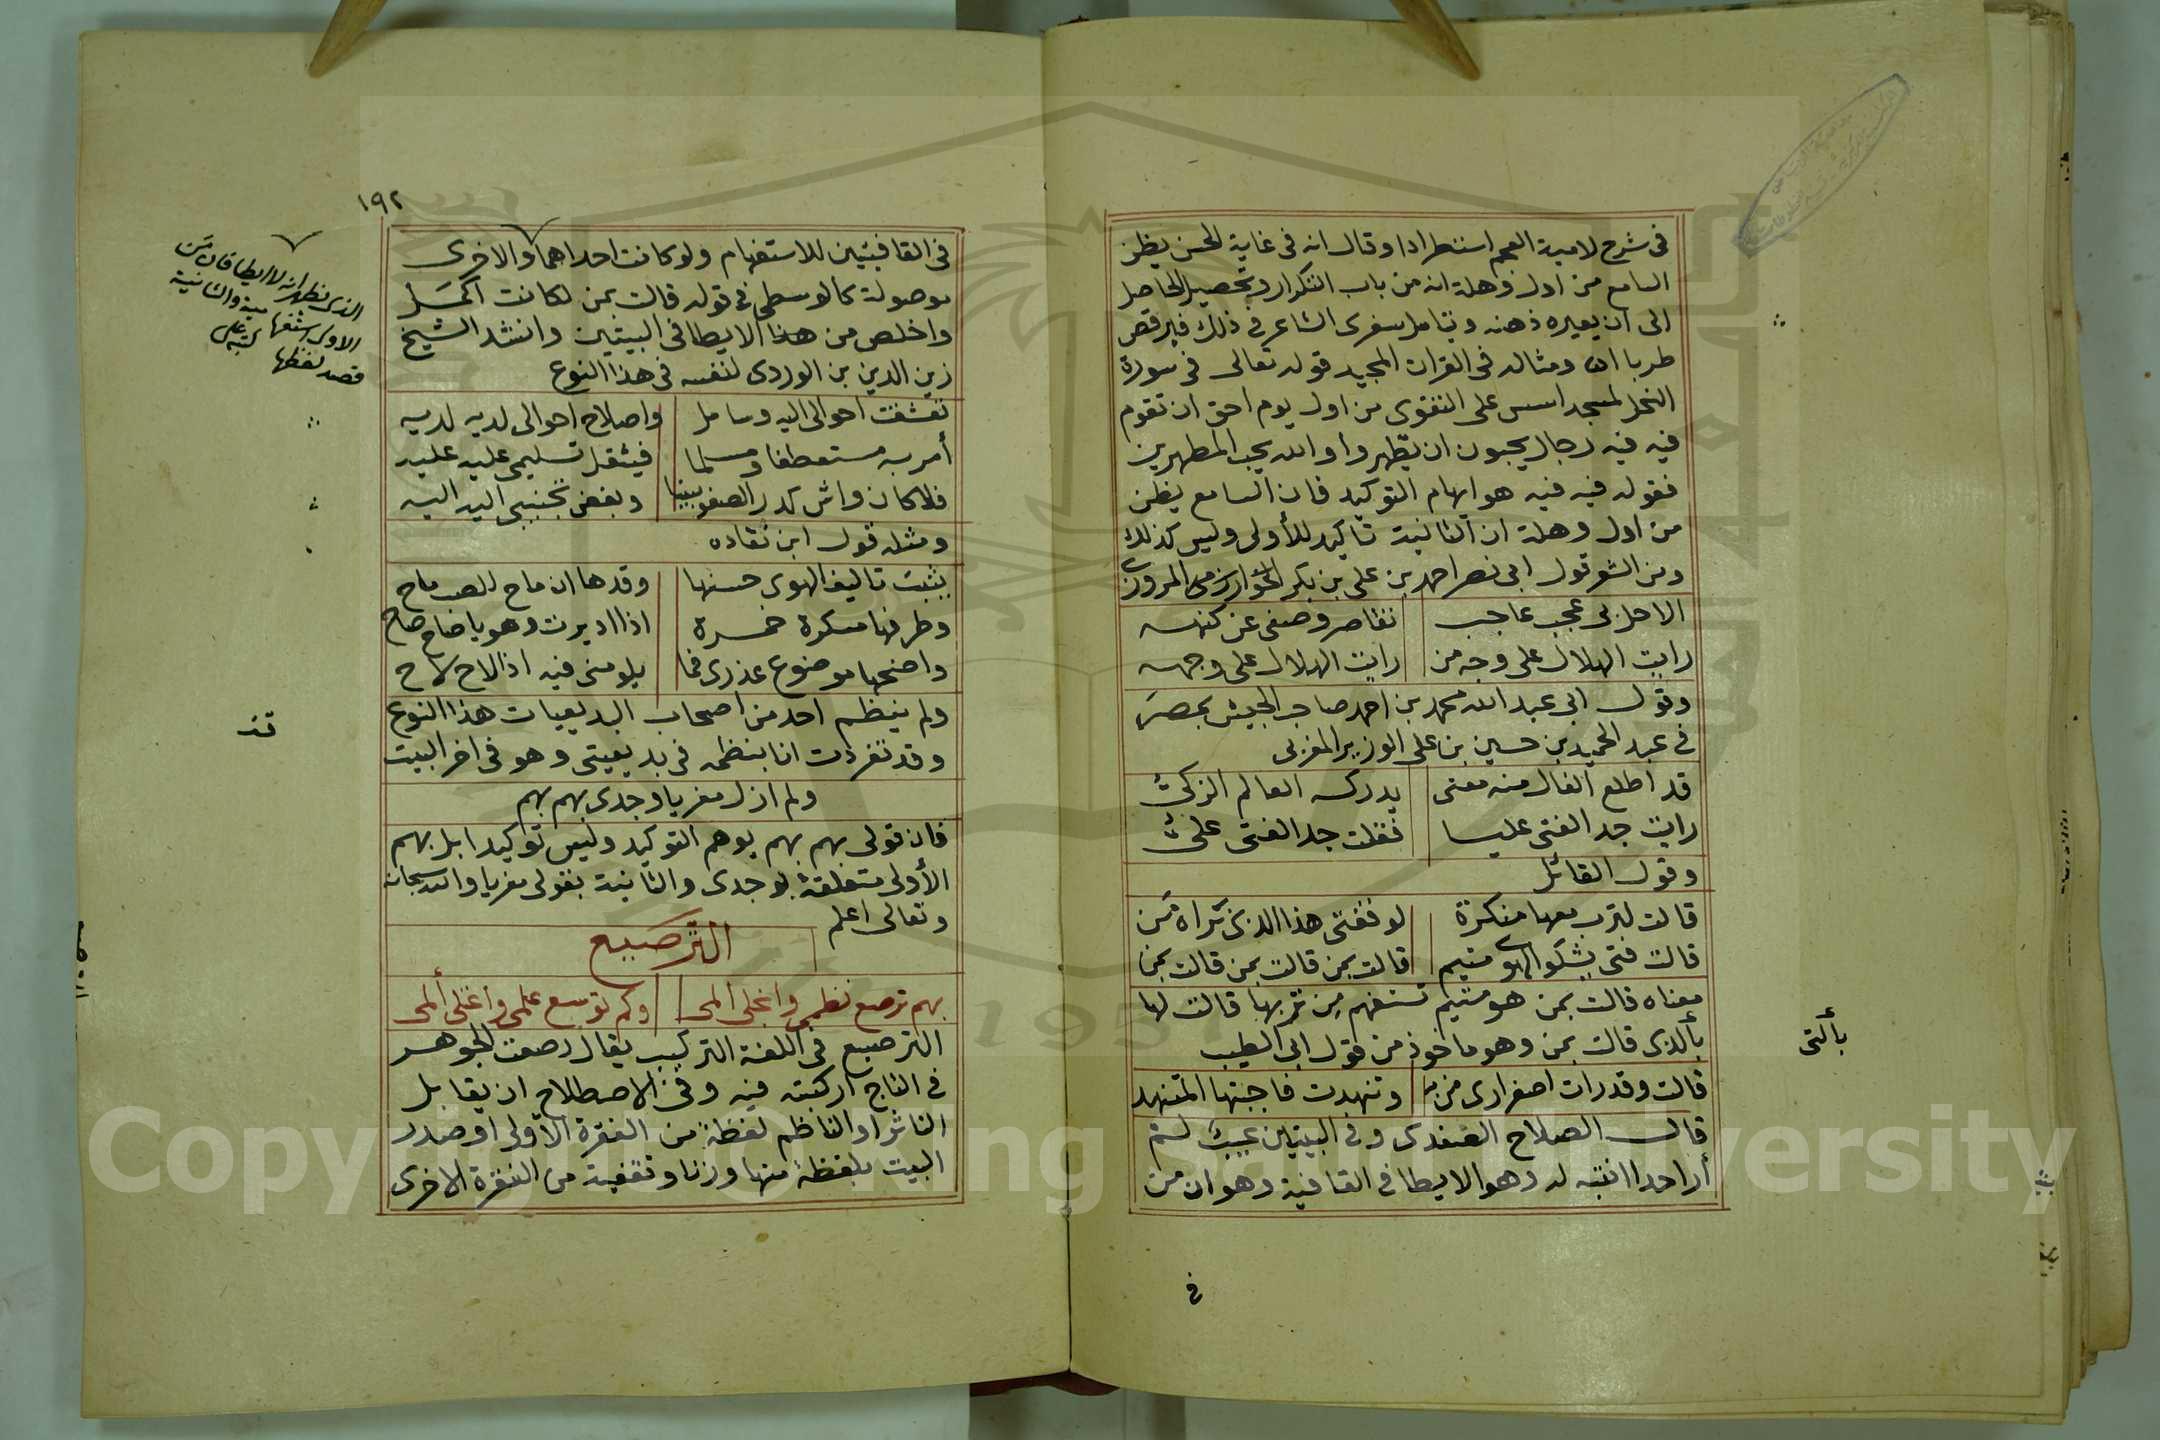 فى شرح لامية العجم استطرادا وقال انه فى غاية الحسن يظن
السامع من اول وهلة انه من باب التكرار وتحصيل الحاصل
الى ان يعيره ذهنه ويتامل مغزى الشاعر فى ذلك فيرقص
طربا اه ومثاله فى القران المجيد قوله تعالى فى سورة
النحل لمسجد اسس على التقوى من اول يوم احق ان تقوم
فيه فيه رجال يحبون ان يتطهروا والله يحب المطهرين
فقوله فيه فيه هو ايهام التوكيد فان السامع يظن
من اول وهلة ان الثانية تاكيد للأولى وليس كذلك
ومن الشعر قول ابى نصر احمد بن على بن بكر الخوارزمى المروزى
الا حل بى عجب عاجب تقاصر وصفى عن كنهه
رايت الهلال على وجه من رايت الهلال على وجهه
وقول ابى عبد الله محمد بن احمد صاحب الجيش بمصر
فى عبد الحميد بن حسين بن على الوزير المغربى
قد اطلع الفال منه معنى يدركه العالم الزكىّ
رايت جد الفتى عليا فقلت جد الفتى علىّ
وقول القائل
قالت لترب معها منكرة لوقفتى هذا الذى نراه من
قالت فتى يشكو الهوى متيم قالت بمن قالت بمن قالت بمن
معناه قالت بمن هو متيم تستفهم من تربها قالت لها
بالذى قالت بمن وهو ماخوذ من قول ابى الطيب
قالت وقد رات اصفرارى من به وتنهدت فاجبتها المتنهد
قال الصلاح الصفدى وفى البيتين عيب لم
أر احدا انتبه له وهو الايطا فى القافية وهو ان من
بألتى
فى
١٩٢
فى القافيتين للاستفهام ولو كانت احداهما والاخرى
موصولة كالوسطى فى قوله قالت بمن لكانت اكمل
واخلص من هذا الايطا فى البيتين وانشد الشيخ
زين الدين بن الوردى لنفسه فى هذا النوع
احوالى اليه وسامل واصلاح احوالى لديه لديه
أمر به مستعطفا ومسلما فيثقل تسليمى عليه عليه
فلا كان واش كدر الصفو بيننا وبغض تحبيبى اليه اليه
ومثله قول ابن نقاده
يثبت تاليف الهوى حسنها وقدها ان ماح للصب ماح
وطرفها مسكرة خمرة اذا اديرت وهو يا صاح صاح
واضحها موضوع عذرى فما يلومنى فيه اذا لاح لاح
ولم ينظم احد من اصحاب البديعيات هذا النوع
وقد تفردت انا بنظمه فى بديعيتى وهو فى اخر البيت
ولم ازل مغريا وجدى بهم بهم
فان قولى بهم بهم يوهم التوكيد وليس توكيدا بل بهم
الأولى متعلقة بوجدى والثانية بقولى مغريا والله سبحانه
وتعالى اعلم
الترصيع
بهم ترصع نظمى وانجلى المى وكم توسع علمى واغتلى ألمى
الترصيع فى اللغة التركيب يقال رصعت الجوهر
فى التاج اركبته فيه وفى الاصطلاح ان يقابل
الناثر او الناظم لفظة من الفقرة الأولى او صدر
البيت بلفظة منها وزنا وتقفية من الفقرة الاخرى
الذى يظهر انه لا ايطا فان من
الاولى استفهامية والثانية
قصد لفظها
قد
Copyright © King Saud University
1957